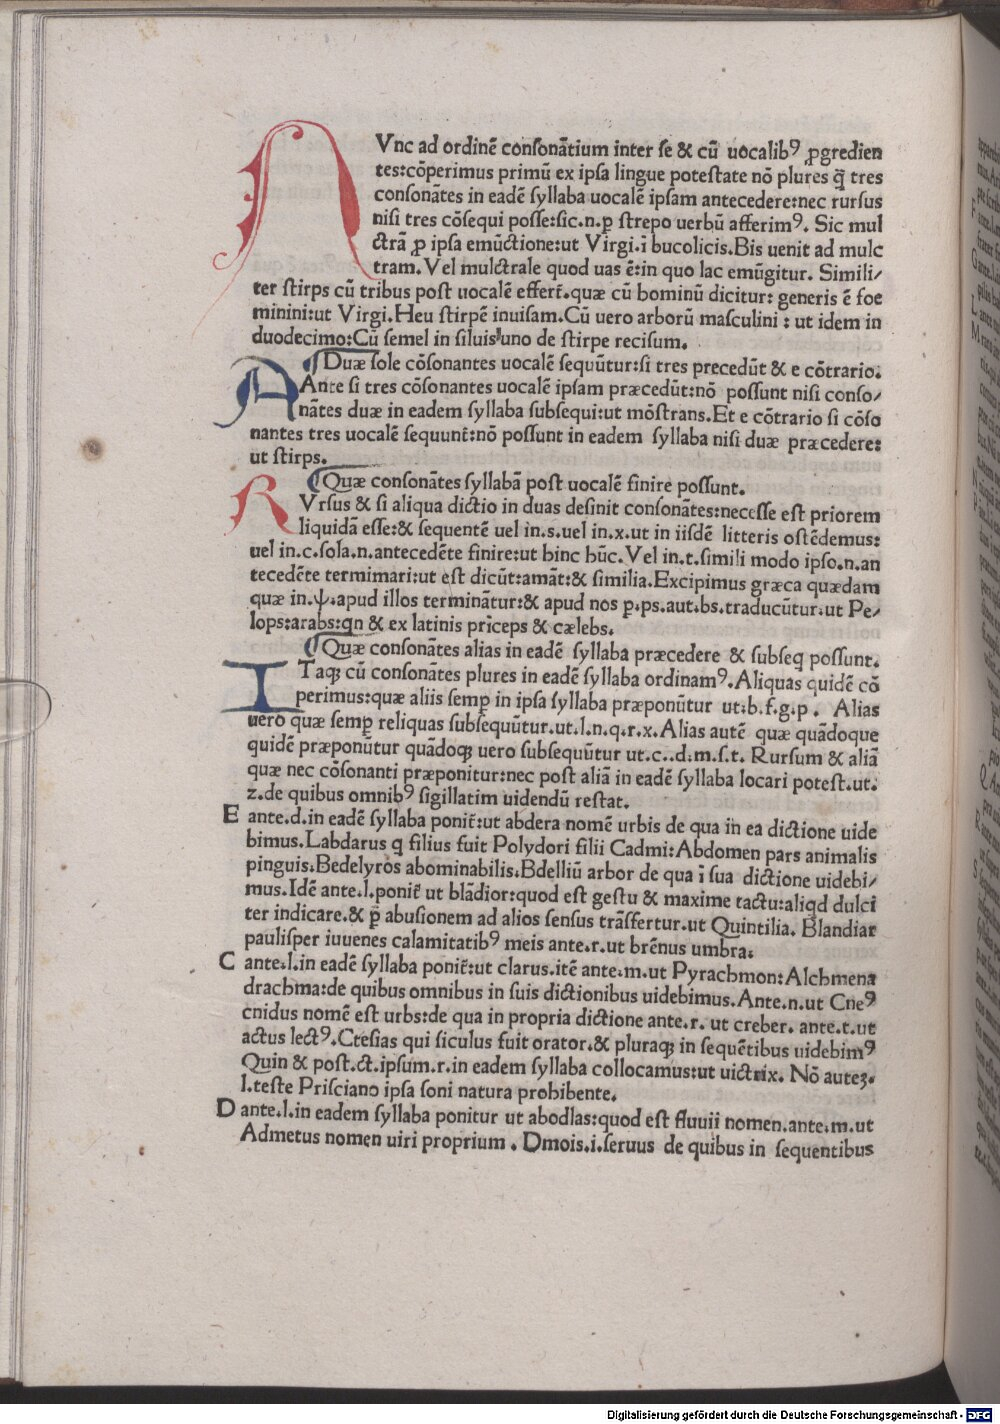 NVnc ad ordinē conſonātium inter ſe & cū uocalibꝰ ꝓgredien
tes:cōperimus primū ex ipſa lingue poteſtate nō plures q̄ tres
conſonātes in eadē ſyllaba uocalē ipſam antecedere:nec rurſus
niſi tres cōſequi poſſe:ſic.n.p ſtrepo uerbū afferimꝰ. Sic mul
ctrā ꝓ ipſa emūctione:ut Virgi.ī bucolicis.Bis uenit ad mulc
tram.Vel mulctrale quod uas ē:in quo lac emūgitur. Simili/
ter ſtirps cū tribus poſt uocalē effert̄.quæ cū hominū dicitur: generis ē foe
minini:ut Virgi.Heu ſtirpē inuiſam.Cū uero arborū maſculini : ut idem in
duodecimo:Cū ſemel in ſiluis uno de ſtirpe reciſum.
¶Duæ ſole cōſonantes uocalē ſequūtur:ſi tres precedūt & e cōtrario.
Ante ſi tres cōſonantes uocalē ipſam præcedūt:nō poſſunt niſi conſo/
nātes duæ in eadem ſyllaba ſubſequi:ut mōſtrans.Et e cōtrario ſi cōſo
nantes tres uocalē ſequunt̄:nō poſſunt in eadem ſyllaba niſi duæ præcedere:
ut ſtirps.
¶Quæ conſonātes ſyllabā poſt uocalē finire poſſunt.
RVrſus & ſi aliqua dictio in duas deſinit conſonātes:neceſſe eſt priorem
liquidā eſſe:& ſequentē uel in.s.uel in.x.ut in iiſdē litteris oſtēdemus:
uel in.c.ſola.n.antecedēte finire:ut hinc hūc.Vel in.t.ſimili modo ipſo.n.an
tecedēte termimari:ut eſt dicūt:amāt:& ſimilia.Excipimus græca quædam
quæ in.ψ.apud illos terminātur:& apud nos ꝑ.ps.aut.bs.traducūtur.ut Pe/
lops:arabs:qn & ex latinis prīceps & cælebs.
¶Quæ conſonātes alias in eadē ſyllaba præcedere & ſubſeq poſſunt.
ITaqꝫ cū conſonātes plures in eadē ſyllaba ordinamꝰ.Aliquas quidē cō
perimus:quæ aliis ſemꝑ in ipſa ſyllaba præponūtur ut.b.f.g.p . Alias
uero quæ ſemꝑ reliquas ſubſequūtur.ut.l.n.q.r.x.Alias autē quæ quādoque
quidē præponūtur quādoqꝫ uero ſubſequūtur ut.c..d.m.ſ.t. Rurſum & aliā
quæ nec cōſonanti præponitur:nec poſt aliā in eadē ſyllaba locari poteſt.ut.
z.de quibus omnibꝰ ſigillatim uidendū reſtat.
E ante.d.in eadē ſyllaba ponit̄:ut abdera nomē urbis de qua in ea dictione uide
bimus.Labdarus q filius fuit Polydori filii Cadmi:Abdomen pars animalis
pinguis.Bedelyros abominabilis.Bdelliū arbor de qua ī ſua dictione uidebi/
mus.Idē ante.l.ponit̄ ut blādior:quod eſt geſtu & maxime tactu:aliqd dulci
ter indicare.& ꝑ abuſionem ad alios ſenſus trāſfertur.ut Quintilia. Blandiar
pauliſper iuuenes calamitatibꝰ meis ante.r.ut brēnus umbra.
C ante.l.in eadē ſyllaba ponit̄:ut clarus.itē ante.m.ut Pyrachmon:Alchmena
drachma:de quibus omnibus in ſuis dictionibus uidebimus.Ante.n.ut Cneꝰ
cnidus nomē eſt urbs:de qua in propria dictione ante.r. ut creber. ante.t.ut
actus lectꝰ.Cteſias qui ſiculus fuit orator.& pluraqꝫ in ſequētibus uidebimꝰ
Quin & poſt.ct.ipſum.r.in eadem ſyllaba collocamus:ut uictrix. Nō auteꝫ.
l.teſte Priſciano ipſa ſoni natura prohibente.
D ante.l.in eadem ſyllaba ponitur ut abodlas:quod eſt fluuii nomen.ante.m.ut
Admetus nomen uiri proprium . Dmois.i.ſeruus de quibus in ſequentibus
Digitalisierung gefördert durch die Deutsche Forschungsgemeinschaft - DFG